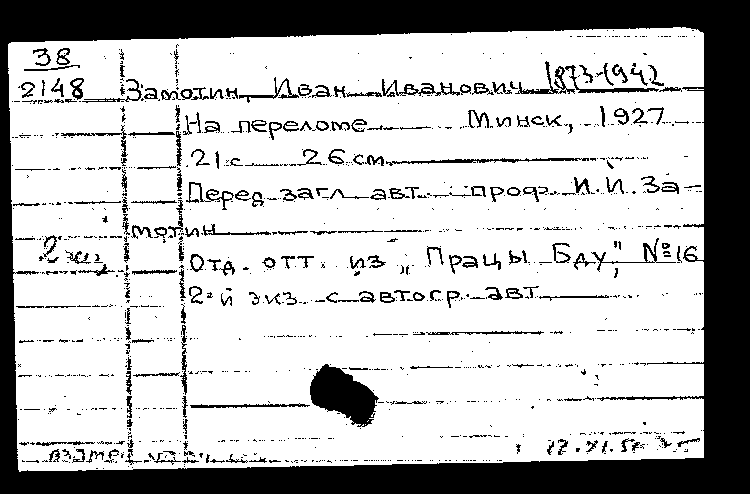 38
2148 Замотин, Иван Иванович 1873-1942
На переломе Минск, 1927
21 с. 26 см.
Перед загл. авт.: проф. И. И. За-
мотин
2 экз. Отд. отт. из „Працы Бду", № 16
2-й экз. с автогр. авт.